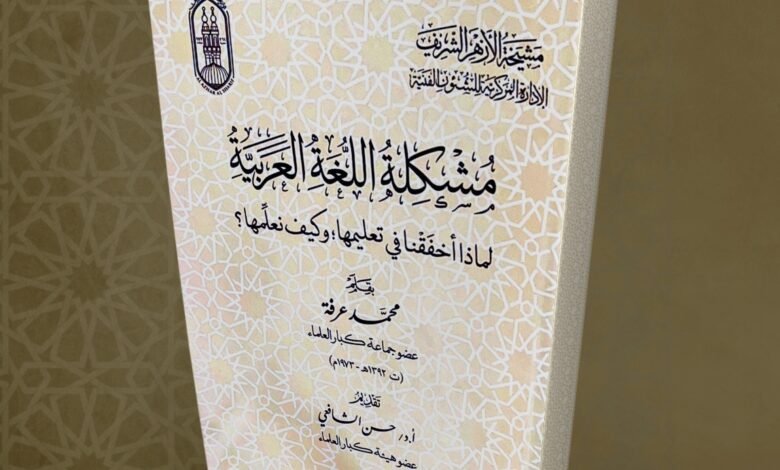 مشيخة الأزهر الشريف
الإدارة المركزية للشئون الفنية
AL AZHAR AL SHARIF
مُشْكِلَةُ اللُّغَةِ العَرَبِيَّةِ
لماذا أخفَقْنا في تعليمها؛ وكيف نعلِّمها؟
بِقَلَمِ
محمَّد عرفة
عضو جماعة كبار العلماء
(ت ١٣٩٢هـ - ١٩٧٣م)
تَقْدِيمُ
أ.د/ حسن الشافعي
عضو هيئة كبار العلماء